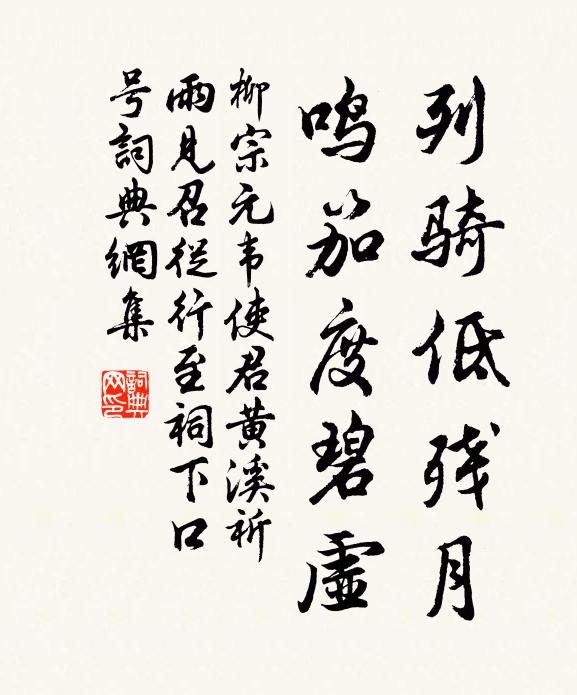 列骑低残月
鸣笳度碧虚
柳宗元韦使君黄溪祈
雨见召從行至祠下口
号詞典網集
詞典
网印